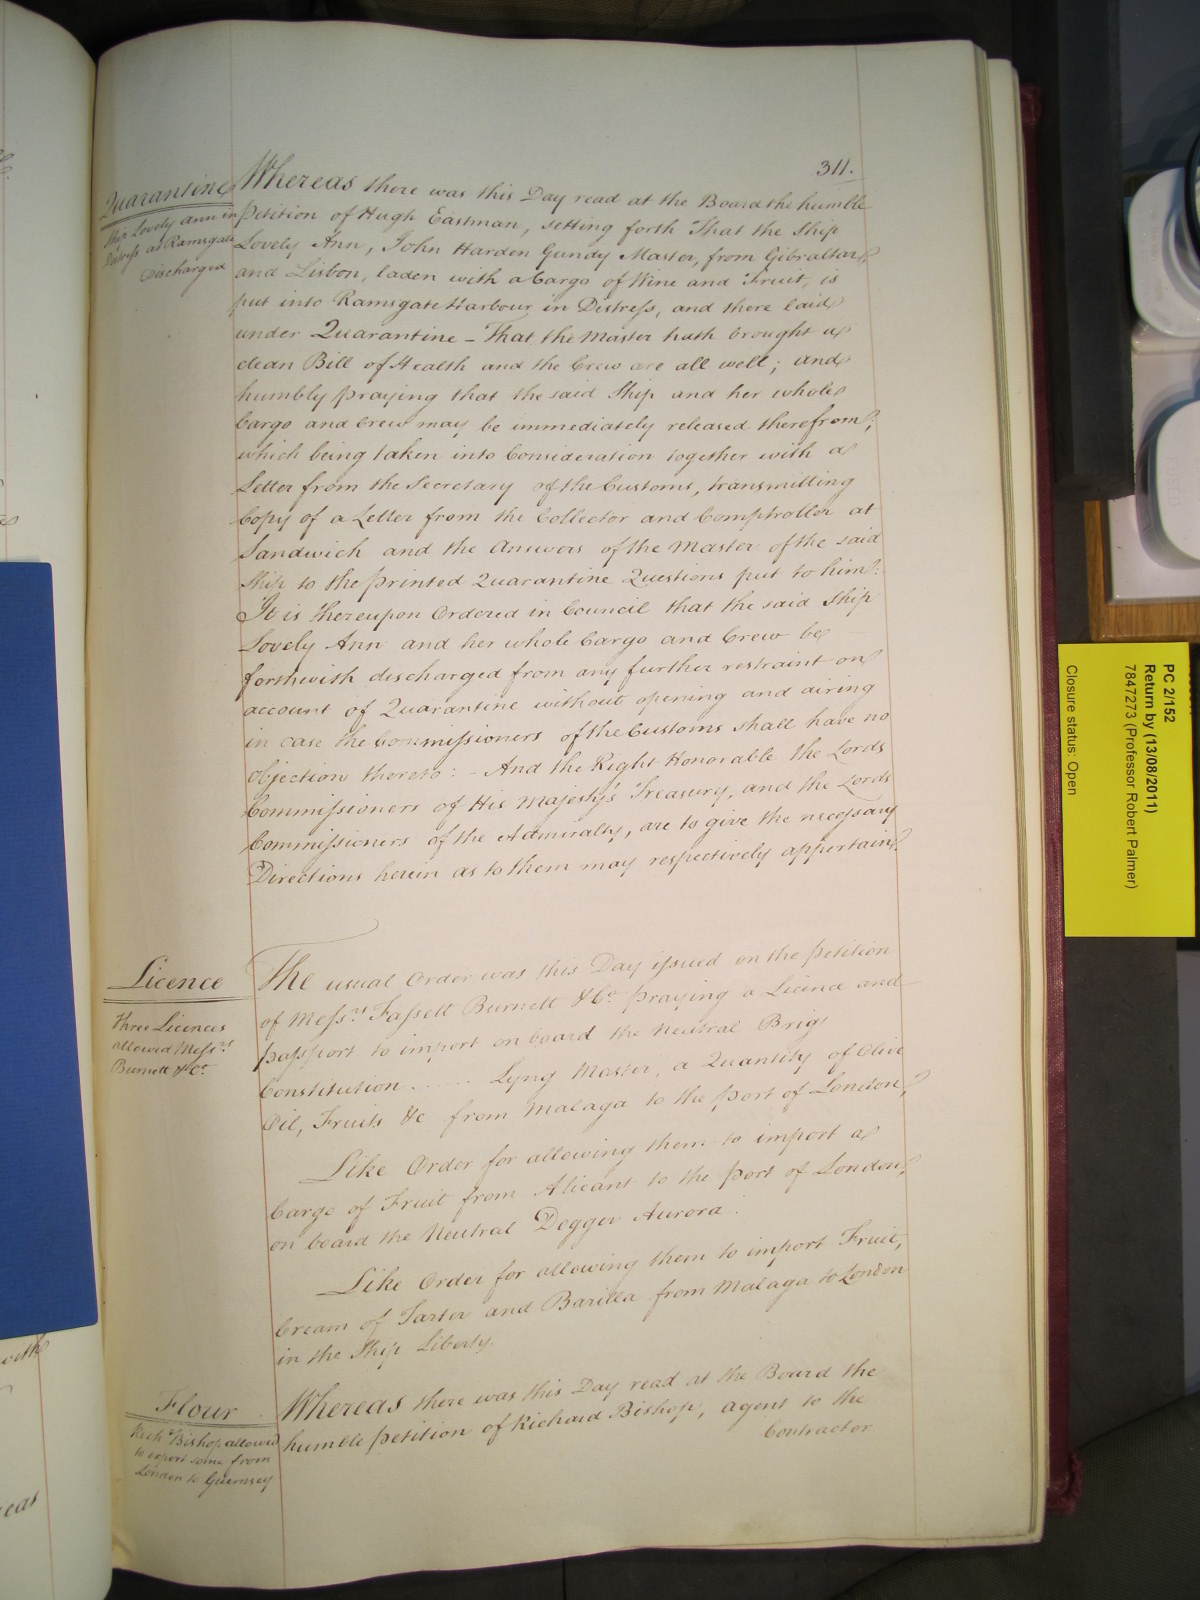 311.
Quarantine
Ship Lovely Ann in
Distress at Ramsgate
Discharged
Whereas there was this Day read at the Board the humble
Petition of Hugh Eastman, setting forth That the Ship
Lovely Ann, John Harden Gundy Master, from Gibraltar,
and Lisbon, laden with a Cargo of Wine and Fruit, is
put into Ramsgate Harbour in Distress, and there laid
under Quarantine – That the Master hath brought a
clean Bill of Health and the Crew are all well; and
humbly praying that the said Ship and her whole
Cargo and Crew may be immediately released therefrom;
which being taken into Consideration together with a
Letter from the Secretary of the Customs, transmitting
Copy of a Letter from the Collector and Comptroller at
Sandwich and the Answers of the Master of the said
Ship to the printed Quarantine Questions put to him:
It is thereupon Ordered in Council that the said Ship
Lovely Ann and her whole Cargo and Crew be
forthwith discharged from any further restraint on
account of Quarantine without opening and airing
in case the Commissioners of the Customs shall have no
objection thereto: – And the Right Honorable the Lords
Commissioners of His Majesty's Treasury, and the Lords
Commissioners of the Admiralty, are to give the necessary
Directions herein as to them may respectively appertain.
Licence
Three Licences
allowed Messrs.
Burnett & Co.
The usual Order was this Day issued on the Petition
of Messrs. Fassett Burnett & Co. praying a Licence and
passport to import on board the Neutral Brig
Constitution ..... Lyng Master, a Quantity of Olive
Oil, Fruits &c from Malaga to the port of London,
Like Order for allowing them to import a
Cargo of Fruit from Alicant to the port of London,
on board the Neutral Dogger Aurora.
Like Order for allowing them to import Fruit,
Cream of Tarter and Barilla from Malaga to London
in the Ship Liberty.
Flour
Richd. Bishop allowed
to export some from
London to Guernsey
Whereas there was this Day read at the Board the
humble Petition of Richard Bishop, agent to the
Contractor
with
reas
PC 2/152
Return by (13/08/2011)
7847273 (Professor Robert Palmer)
Closure status: Open